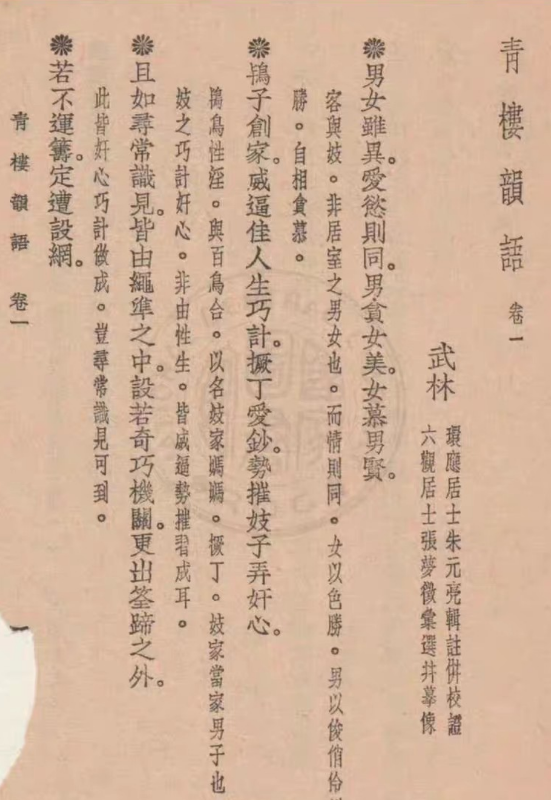 青樓韻語 卷一
武林
應居士朱元亮輯註併校證
六觀居士張夢徵彙選并摹像
男女雖異。愛慾則同。男貪女美。女慕男賢。
客與妓。非居室之男女也。而情則同。女以色勝。男以俊俏伶
勝。自相貪慕。
鴇子創家。威逼佳人生巧計。撅丁愛鈔。勢摧妓子弄奸心。
鴇鳥性淫。與百鳥合。以名妓家媽媽。撅丁。妓家當家男子也
妓之巧計奸心。非由性生。皆威逼勢摧習成耳。
且如尋常識見。皆由繩準之中。設若奇巧機關。更出筌蹄之外。
此皆奸心巧計做成。豈尋常識見可到。
若不運籌。定遭設網。
青樓韻語 卷一 一